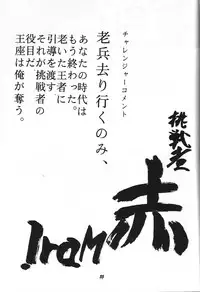 挑戦者
赤
チャレンジャーコメント
老兵去り行くのみ、
あなたの時代は
もう終わった。
老いた王者に
引導を渡す
それが挑戦者の
役目だ
王座は俺が奪う。